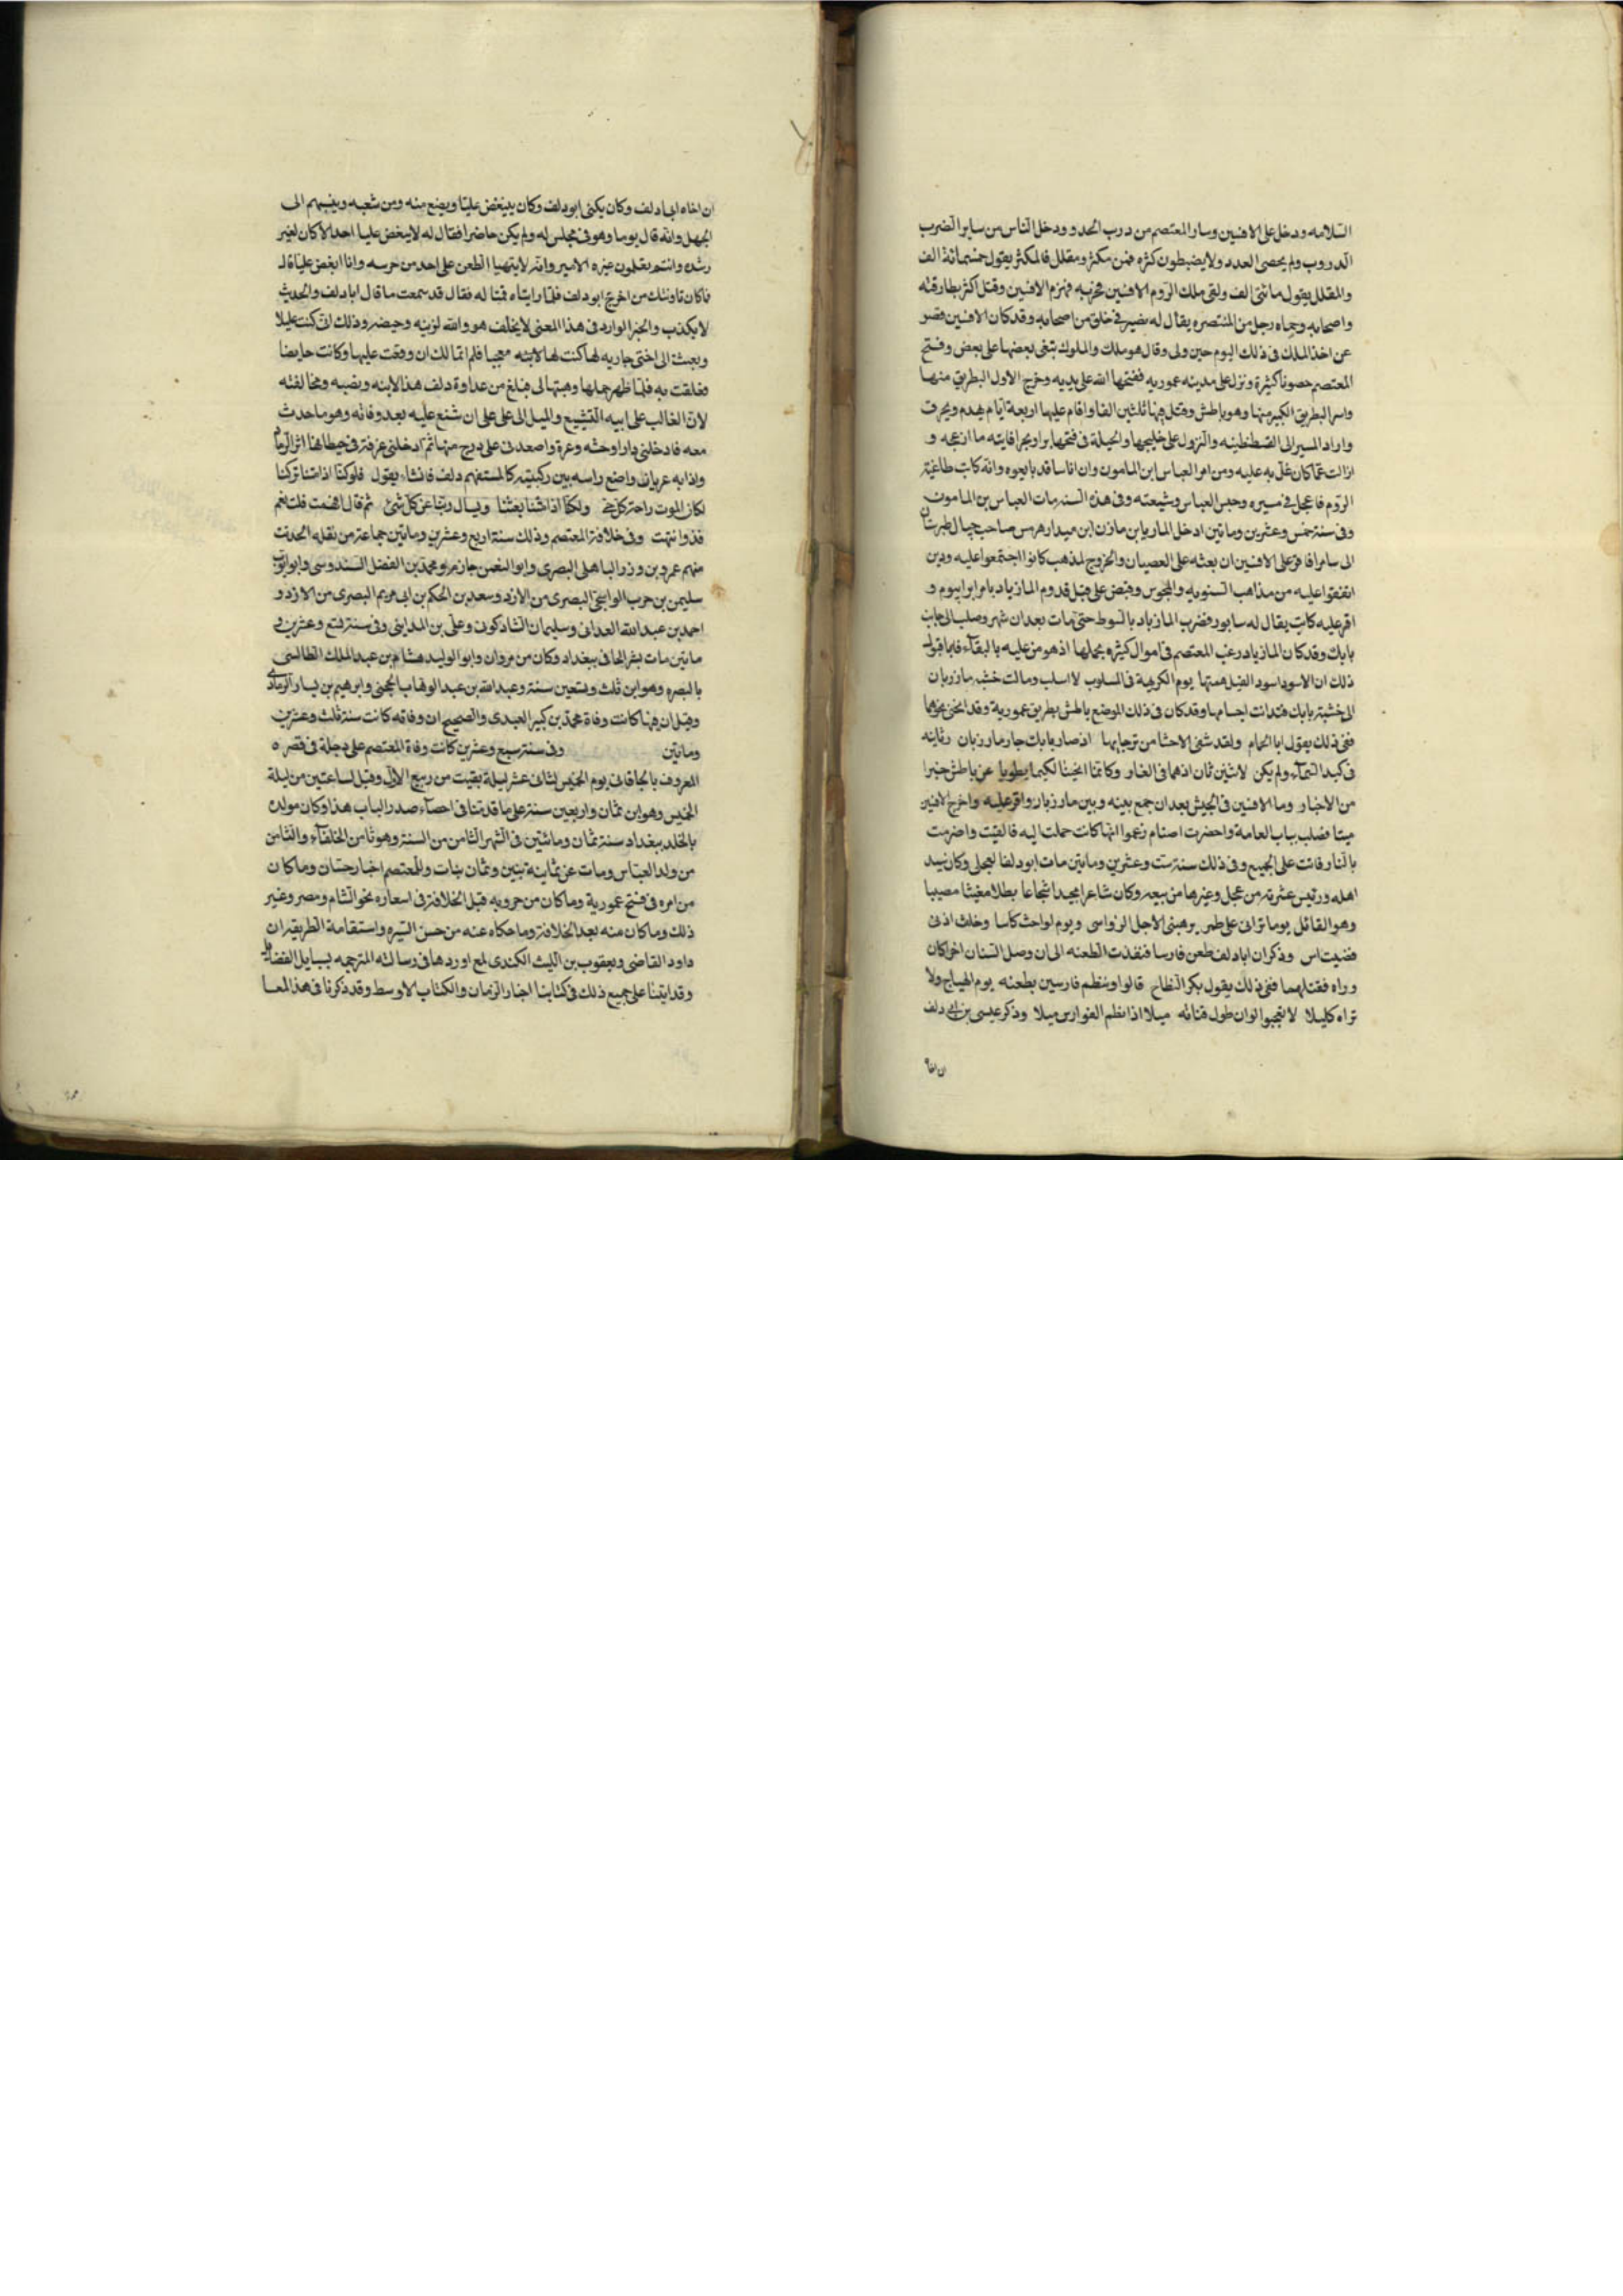 السلامه ودخل على الافشين وسار المعتصم من درب الحدث ودخل الناس من ساير الضرب
الدروب ولم يحصى العدد ولا يضبطون كثره فمن مكثر ومقلل فالمكثر يقول خمسمائة الف
والمقلل يقول مائتى الف ولقى ملك الروم الافشين فحربه فهزم الافشين وقتل اكثر بطارقته
واصحابه وحماه رجل من المنتصره يقال له نصير فى خلق من اصحابه وقد كان الافشين قصر
عن اخذ الملك فى ذلك اليوم حين ولى وقال هو ملك والملوك تبقى بعضها على بعض وفتح
المعتصم حصونا كثيرة ونزل على مدينه عموريه ففتحها الله على يديه وخرج الاول البطريق منها
واسر البطريق الكبير منها وهو باطش وقتل منها ثلثين الفا واقام عليها اربعة ايام يهدم ويحرق
واراد المسير الى القسطنطينيه والنزول على خليجها والحيلة فى فتحها برا وبحرا فاتيه ما ازعجه و
ازالت عما كان عليه ومن امر العباس ابن المامون وان اناسا قد بايعوه وانه كاتب طاغية
الروم فاعجل فى مسيره وحبس العباس وشيعته وفى هذه السنه مات العباس بن المامون
وفى سنة خمس وعشرين وماتين ادخل المازيار بن مازن ابن صاحب جبال طبرستان
الى سامرا فاقر على الافشين ان بعثه على العصيان والخروج لمذهب كانوا اجتمعوا عليه ودين
اتفقوا عليه من مذاهب الثنويه والمجوس وقبض على قبل قدوم المازيار بامرا بيوم و
اقر عليه كاتب يقال له سابور فضرب المازيار بالسوط حتى مات بعد ان شهر وصلب الى جانب
بابك وقد كان المازيار رغب المعتصم فى اموال كثيره يحملها اذ هو من عليه بالبقآء فابا قبول
ذلك ان الاسود اسود الغيل همتها يوم الكريهة فى المسلوب لا اسلب ومالت خشبه مازربان
الى خشبة بابك فتدانت اجسامها وقد كان فى ذلك الموضع باطش بطريق عمورية وقد انحنى نحوهما
ففى ذلك يقول ابا تمام ولقد شفى الاحشا من ترحابها اذ صار بابك جار مازربان ثانيه
فى كبد السمآء ولم يكن لاثنين ثان اذ هما فى الغار وكانما انحنيا لكيما يطويا عن باطش خبرا
من الاخبار ومات الافشين فى الحبس بعد ان جمع بينه وبين مازربار واقر عليه واخرج الافشين
ميتا فصلب بباب العامة واحضرت اصنام زعموا انها كانت حملت اليه فالقيت واضرمت
بالنار فاتت على الجميع وفى ذلك سنة ست وعشرين وماتين مات ابو دلف العجلى وكان سيد
اهله ورئيس عشيرته من عجل وغيرها من ربيعه وكان شاعرا مجيدا شجاعا بطلا مغيثا مصيبا
وهو القائل يوما ترانى على طمر يرهبنى الاجل الرواسى ويوم لواحث كاسا وخلف اذنى
قضيب اس وذكر ان ابا دلف طعن فارسا فنفذت الطعنه الى ان وصل السنان اخر كان
وراه فقتلهما ففى ذلك يقول بكر النطاح قالوا وينظم فارسين بطعنه يوم الهياج ولا
تراه كليلا لا تعجبوا لو ان طول قناته ميلا اذا نظم الفوارس ميلا وذكر عيسى بن ابى دلف
ان اخاه
ان اخاه ابا دلف وكان يكنى ابو دلف وكان يبغض عليّا ويضع منه ومن شعبه وينسبهم الى
الجهل وانه قال يوما وهو فى مجلس له ولم يكن حاضرا فقال له لا يبغض عليا احد الا كان لغير
رشده وانتم تعلمون غيره الامير وانه لا يتهيا الطعن على احد من حرسه وانا ابغض عليا قال
فما كان باوشك من اخرج ابو دلف فلما رايناه قمنا له فقال قد سمعت ما قال ابا دلف والحديث
لا يكذب والخبر الوارد فى هذا المعنى لا يخلف هو والله لزنيه وحيضه وذلك انى كنت عليلا
وبعثت الى اختى جاريه لها كنت لها معجبا فلم اتمالك ان وقعت عليها وكانت حايضا
فعلقت به فلما ظهر حملها وهبتها لى فبلغ من عداوة دلف هذا لابيه ونصبه ومخالفته
لان الغالب على ابيه التشيع والميل الى على على ان شنع عليه بعد وفاته وهو ما حدث
معه فادخلنى دارا وحشه وعرة واصعدنى على درج منها ثم ادخلنى غرفة فى حيطانها اثر الرماد
واذا به عريان واضع راسه بين ركبتيه كالمستفهم دلف فانشاء يقول فلو كنا اذا متنا تركنا
لكان الموت راحة كل حى ولكنا اذا متنا بعثنا ويسال ربنا عن كل شئ ثم قال افهمت قلت نعم
وانتهت وفى خلافة المعتصم وذلك سنة اربع وعشرين وماتين جماعة من نقله الحديث
منهم عمرو بن الباهلى البصرى وابو النعمن حازم ومحمد بن الفضل السندوسى وابو ايوب
سليمن بن حرب الواشجى البصرى من الازد وسعد بن الحكم بن ابى مريم البصرى من الازد و
احمد بن عبد الله الغدانى وسليمان الشاذكونى وعلى بن المدينى وفى سنة تسع وعشرين و
ماتين مات بشر الحافى ببغداد وكان من مروان وابو الوليد هشام بن عبد الملك الطالسى
بالبصره وهو ابن ثلث وتسعين سنة وعبد الله بن عبد الوهاب الجحى وابرهيم بن يسار الرمادى
وقيل ان فيها كانت وفاة محمد بن كبير العبدى والصحيح ان وفاته كانت سنة ثلث وعشرين
وماتين وفى سنة سبع وعشرين كانت وفاة المعتصم على دجلة فى قصره
المعروف بالخاقانى يوم الخميس لثمانى عشر ليلة بقيت من ربيع الاول وقيل لساعتين من ليلة
الخميس وهو ابن ثمان واربعين سنة على ما قدمنا فى احصآء صدر الباب هذا وكان مولده
بالخلد ببغداد سنة ثمان ومائتين فى الشهر الثامن من السنة وهو ثامن الخلفآء والثامن
من ولد العباس ومات عن ثمانية بنين وثمان بنات وللمعتصم اخبار حسان وما كان
من امره فى فتح عمورية وما كان من حروبه قبل الخلافة فى اسفاره نحو الشام ومصر وغير
ذلك وما كان منه بعد الخلافة وما حكاه عنه من حسن السيره واستقامة الطريقه ابن
داود القاضى ويعقوب بن الليث الكندى لمع اوردها فى رسالته المترجمه بسبايل الفضايل
وقد اتينا على جميع ذلك فى كتابنا اخبار الزمان والكتاب الاوسط وقد ذكرنا فى هذا لمعا